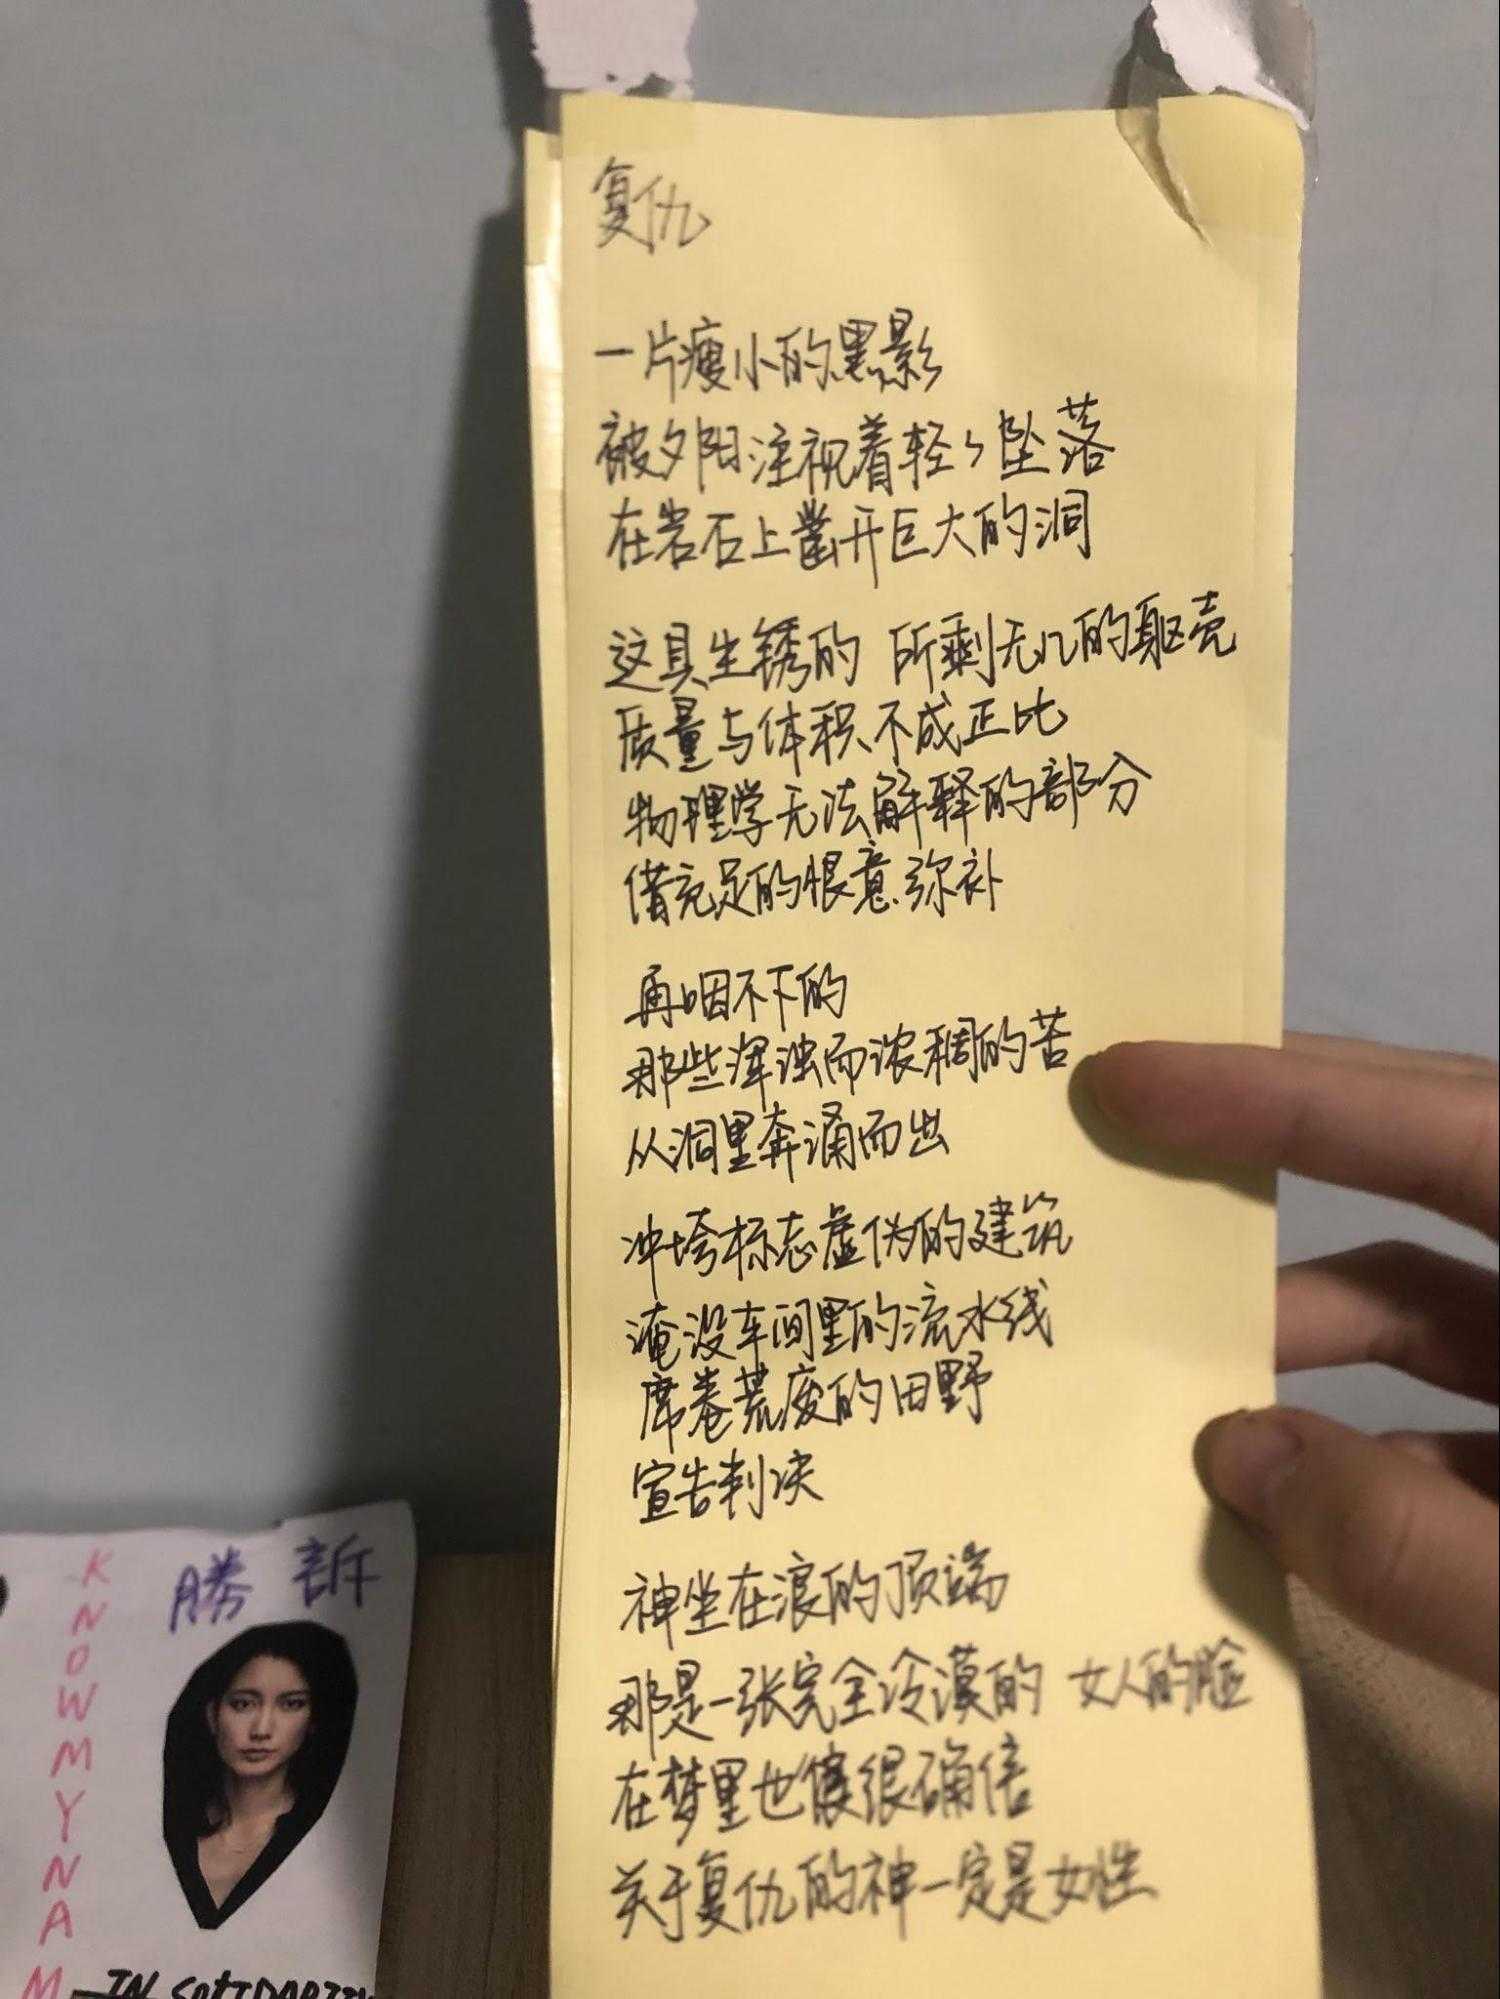 复仇
一片瘦小的黑影
被夕阳注视着轻々坠落
在岩石上凿开巨大的洞
这具生锈的 所剩无几的躯壳
质量与体积不成正比
物理学无法解释的部分
借充足的恨意弥补
再咽不下的
那些浑浊而浓稠的苦
从洞里奔涌而出
冲垮标志虚伪的建筑
淹没车间里的流水线
席卷荒废的田野
宣告判决
神坐在浪的顶端
那是一张完全冷漠的 女人的脸
在梦里也很确信
关于复仇的神一定是女性
KNOWMYNAM
勝訴
IN SOLIDARITY